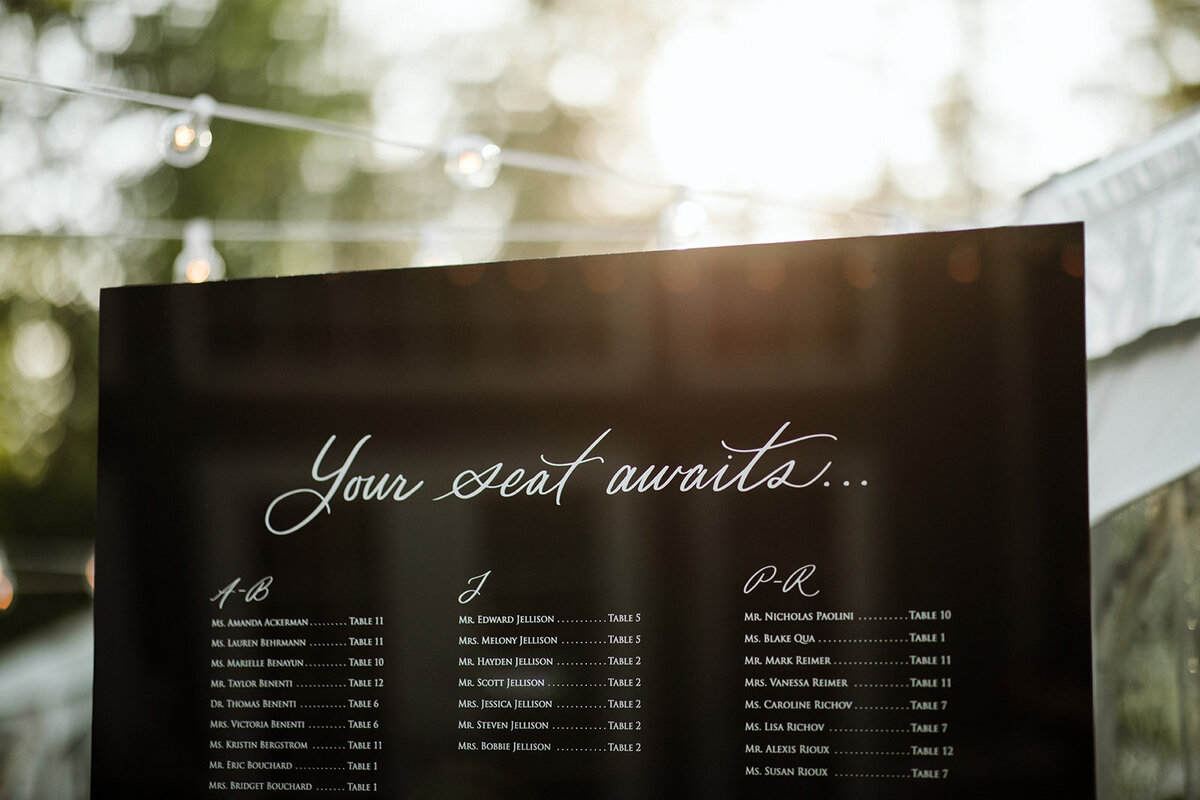 Your seat awaits...
A-B
Ms. Amanda Ackerman ........ Table 11
Ms. Lauren Behrmann ......... Table 11
Ms. Marielle Benayun .......... Table 10
Mr. Taylor Benenti ............ Table 12
Dr. Thomas Benenti ........... Table 6
Mrs. Victoria Benenti ......... Table 6
Ms. Kristin Bergstrom ....... Table 11
Mr. Eric Bouchard ............ Table 1
Mrs. Bridget Bouchard ...... Table 1
J
Mr. Edward Jellison ............ Table 5
Mrs. Melony Jellison ........... Table 5
Mr. Hayden Jellison ............ Table 2
Mr. Scott Jellison .............. Table 2
Mrs. Jessica Jellison ............ Table 2
Mr. Steven Jellison ............. Table 2
Mrs. Bobbie Jellison ............ Table 2
P-R
Mr. Nicholas Paolini ........... Table 10
Ms. Blake Qua .................... Table 1
Mr. Mark Reimer ................ Table 11
Mrs. Vanessa Reimer ............ Table 11
Ms. Caroline Richov ............ Table 7
Ms. Lisa Richov .................. Table 7
Mr. Alexis Rioux ................. Table 12
Ms. Susan Rioux ................. Table 7